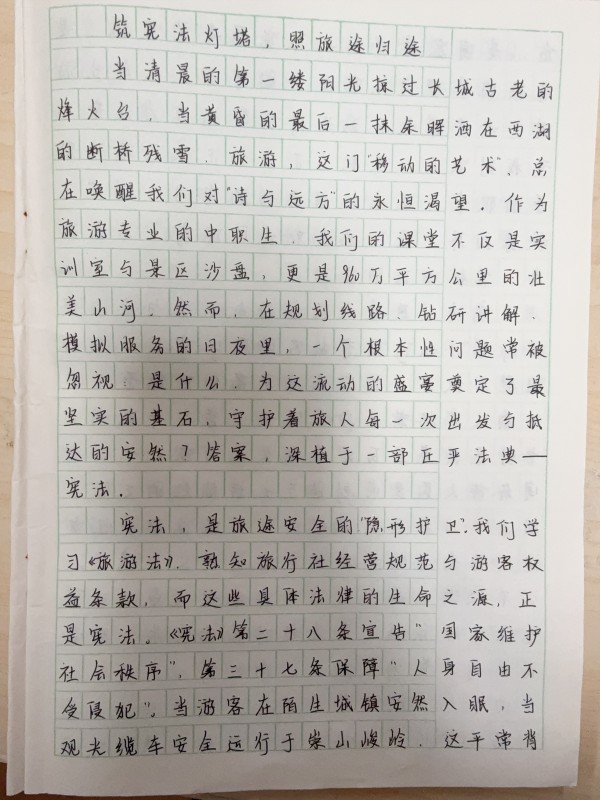 筑宪法灯塔，照旅途归途
当清晨的第一缕阳光掠过长城古老的
烽火台，当黄昏的最后一抹余晖洒在西湖
的断桥残雪，旅游，这门"移动的艺术"，总
在唤醒我们对"诗与远方"的永恒渴望。作为
旅游专业的中职生，我们的课堂不仅是实
训室与景区沙盘，更是960万平方公里的壮
美山河。然而，在规划线路、钻研讲解、
模拟服务的日夜里，一个根本性问题常被
忽视：是什么，为这流动的盛宴奠定了最
坚实的基石，守护着旅人每一次出发与抵
达的安然？答案，深植于一部庄严法典——
宪法。
宪法，是旅途安全的"隐形护卫"。我们学
习《旅游法》，熟知旅行社经营规范与游客权
益条款，而这些具体法律的生命之源，正
是宪法。《宪法》第二十八条宣告"国家维护
社会秩序"，第三十七条保障"人身自由不
受侵犯"。当游客在陌生城镇安然入眠，当
观光缆车安全运行于崇山峻岭，这平常背